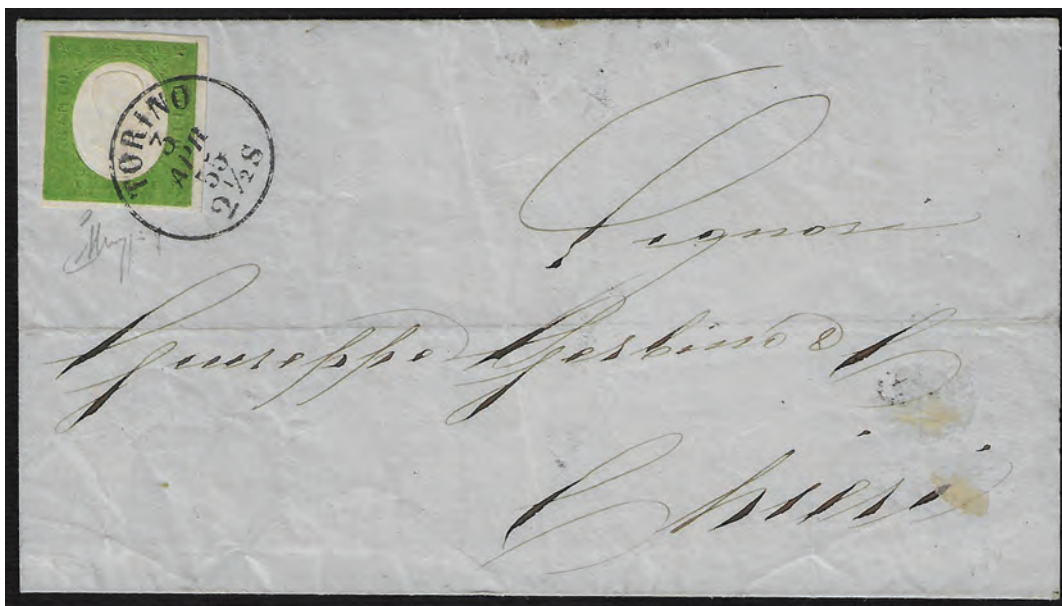 TORINO
3
APR
55
2½S
Signori
Giuseppe Gerbino & C
Chieri